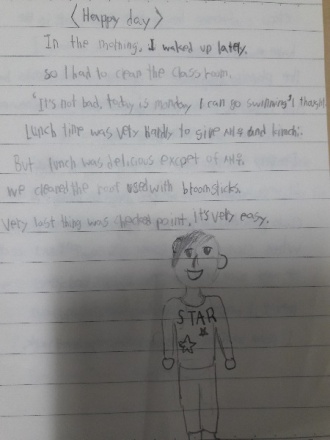 <Happy day>
In the morning, I waked up lately.
so I had to clean the classroom.
"It's not bad, today is monday I can go swimming" I thought
Lunch time was very hardly to give and kimchi.
But lunch was delicious excpet of
we cleaned the roof used with broomsticks.
Very last thing was checked point, It's very easy.
STAR